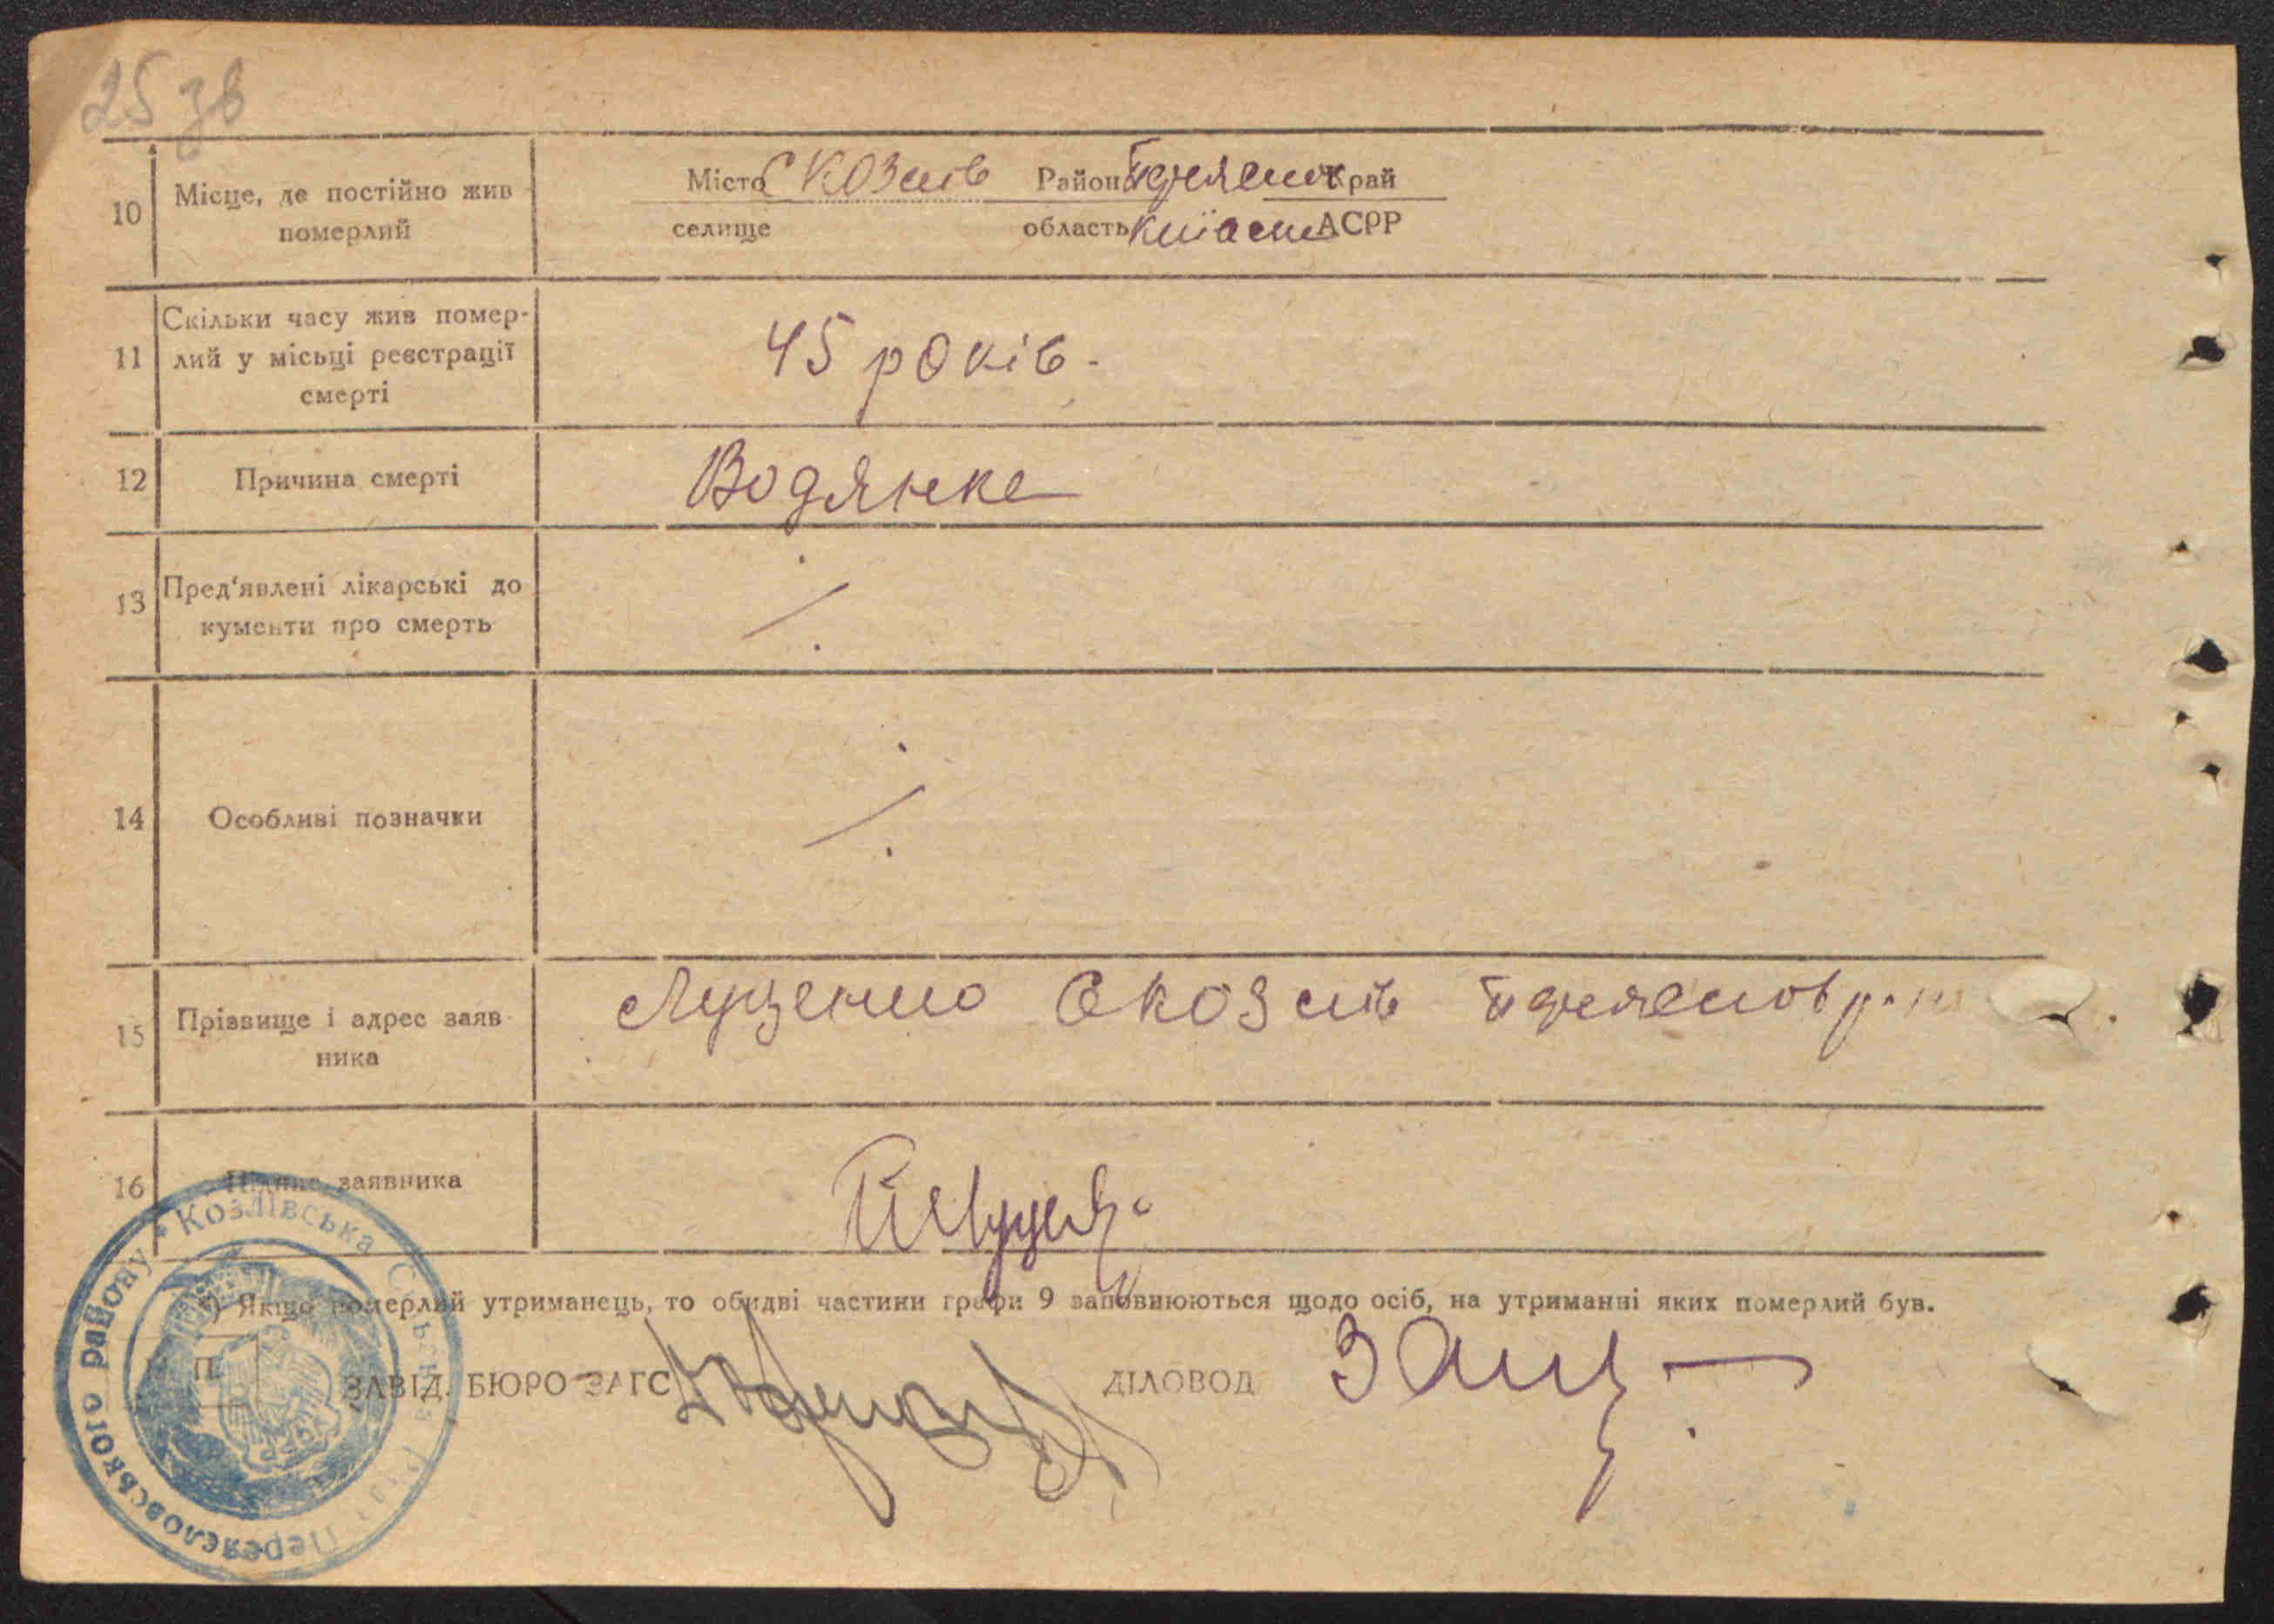 25 зв
10 Місце, де постійно жив померлий
Місто С Козлів Район Переяслов Край
селище область Київськ АСРР
11 Скільки часу жив помер-
лий у місьці реєстрації
смерті
45 років.
12 Причина смерті
Водянка
13 Пред'явлені лікарські до
кументи про смерть
14 Особливі позначки
15 Прізвище і адрес заяв
ника
Луценко С Козлів Переяслов р.н
16 Підпис заявника
*) Якщо померлий утриманець, то обидві частини графи 9 заповнюються щодо осіб, на утриманні яких померлий був.
П
ЗАВІД. БЮРО ЗАГС
ДІЛОВОД
Козлівська Сільська Рада Переяславського району